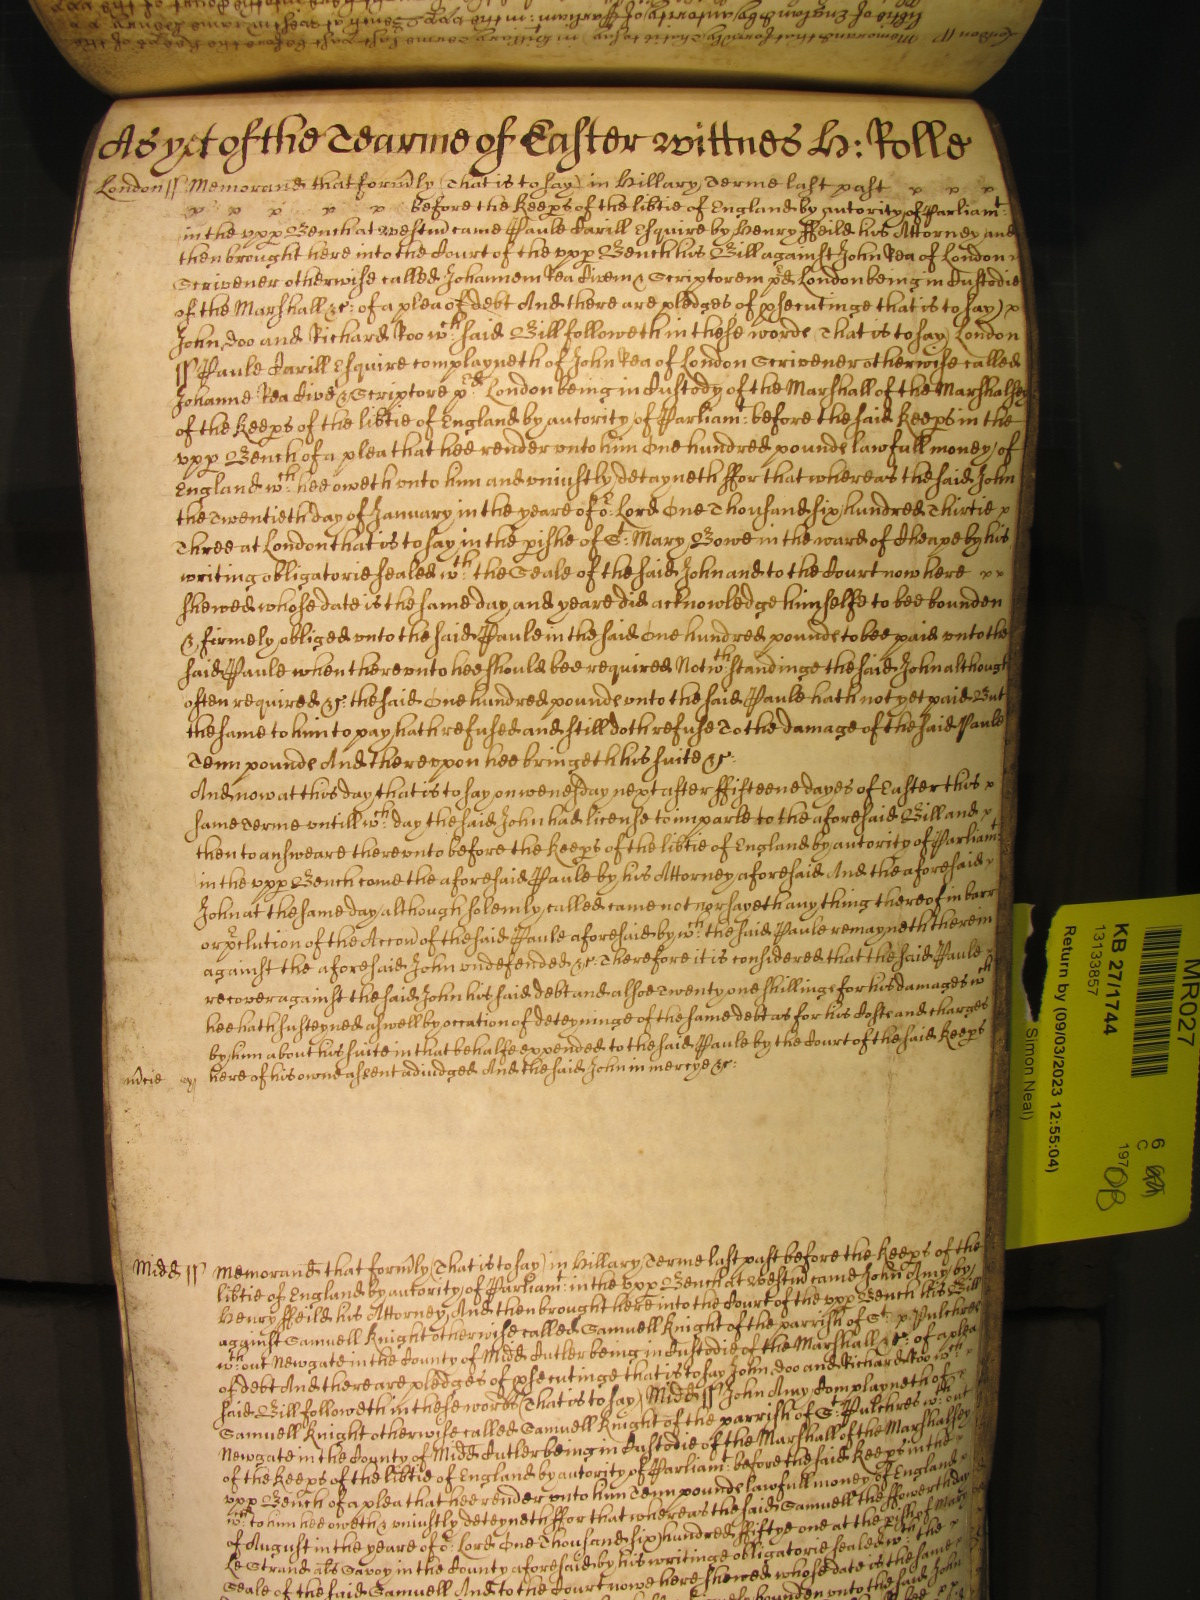 As yet of the Tearme of Easter wittnes H: Rolle
London ss Memorand that formly (That is to say) in Hillary Terme last past
before the Keeps of the libtie of England by autority of Parliamt:
in the upp Bench at Westm came Paule Carill Esquire by Henry Feild his Attorney and
then brought here into the Court of the upp Bench his Bill against John Rea of London
Scrivener otherwise called Johannem Rea Civem & Scriptorem London being in Custodie
of the Marshall &c: of a plea of debt And there are pledges of psecutinge that is to say)
John Doo and Richard Roo wch: said Bill followeth in these words (That is to say) London
ss Paule Carill Esquire complayneth of John Rea of London Scrivener otherwise called
Johanne Rea Cive & Scriptore London being in Custody of the Marshall of the Marshalsey
of the Keeps of the libtie of England by autority of Parliamt: before the said Keeps in the
upp Bench of a plea that hee render unto him One hundred pounds lawfull money of
England wch: hee oweth unto him and uniustly detayneth ffor that whereas the said John
the Twentieth day of January in the yeare of or: Lord One Thousand six hundred Thirtie
Three at London that is to say in the pishe of St: Mary Bowe in the ward of Cheape by his
writing obligatorie sealed wth: the Seale of the said John and to the Court now here
shewed whose date is the same day and yeare did acknowledge himselfe to bee bounden
& firmely obliged unto the said Paule in the said One hundred pounds to bee paid unto the
said Paule when thereunto hee should bee required Notwthstandinge the said John although
often required &c: the said One hundred pounds unto the said Paule hath not yet paid But
the same to him to pay hath refused and still doth refuse To the damage of the said Paule
Tenn pounds And thereuppon hee bringeth his suite &c:
And now at this day that is to say on wensday next after ffifteene dayes of Easter this
same Terme untill wch: day the said John had license to imparle to the aforesaid Bill and
then to answeare thereunto before the Keeps of the libtie of England by autority of Parliamt:
in the upp Bench come the aforesaid Paule by his Attorney aforesaid And the aforesaid
John at the same day although solemly called came not nor sayeth any thing thereof in barr
or pclution of the Accon of the said Paule aforesaid by wch: the said Paule remayneth therein
against the aforesaid John undefended &c Therefore it is considered that the said Paule
recover against the said John his said debt and alsoe Twenty one shillings for his damages wch
hee hath susteyned aswell by occation of deteyninge of the same debt as for his Costs and charges
by him about his suite in that behalfe expended to the said Paule by the Court of the said Keeps
mcie here of his owne assent adiudged And the said John in mercye &c:
Midd ss Memorand that formly (That is to say) in Hillary Terme last past before the Keeps of the
libtie of England by autority of Parliamt: in the upp Bench at Westm came John Amy by
Henry Feild his Attorney And then brought here into the Court of the upp Bench his Bill
against Samuell Knight otherwise called Samuell Knight of the parrish of St: Pulchres
wthout Newgate in the County of Midd Cutler being in Custodie of the Marshall &c: of a plea
of debt And there are pledges of psecutinge that is to say John Doo and Richard Roo wch:
said Bill followeth in these words (That is to say) Midd ss John Amy Complayneth of
Samuell Knight otherwise called Samuell Knight of the parrish of St: Pulchres wthout
Newgate in the County of Midd Cutler being in Custodie of the Marshall of the Marshalsey
of the Keeps of the libtie of England by autority of Parliamt: before the said Keeps in the
upp Bench of a plea that hee render unto him Tenn pounds lawfull money of England
wch: to him hee oweth & uniustly deteyneth ffor that whereas the said Samuell the ffowerth day
of August in the yeare of or: Lord One Thousand six hundred ffiftye one at the pish of Mary
Le Strand als Savoy in the County aforesaid by his writinge obligatorie sealed wth: the
Seale of the said Samuell And to the Court nowe here shewed whose date is the same
bounden unto the said John
MR027
KB 27/1744
13133857
Return by (09/03/2023 12:55:04)
Simon Neal)
6
C
197